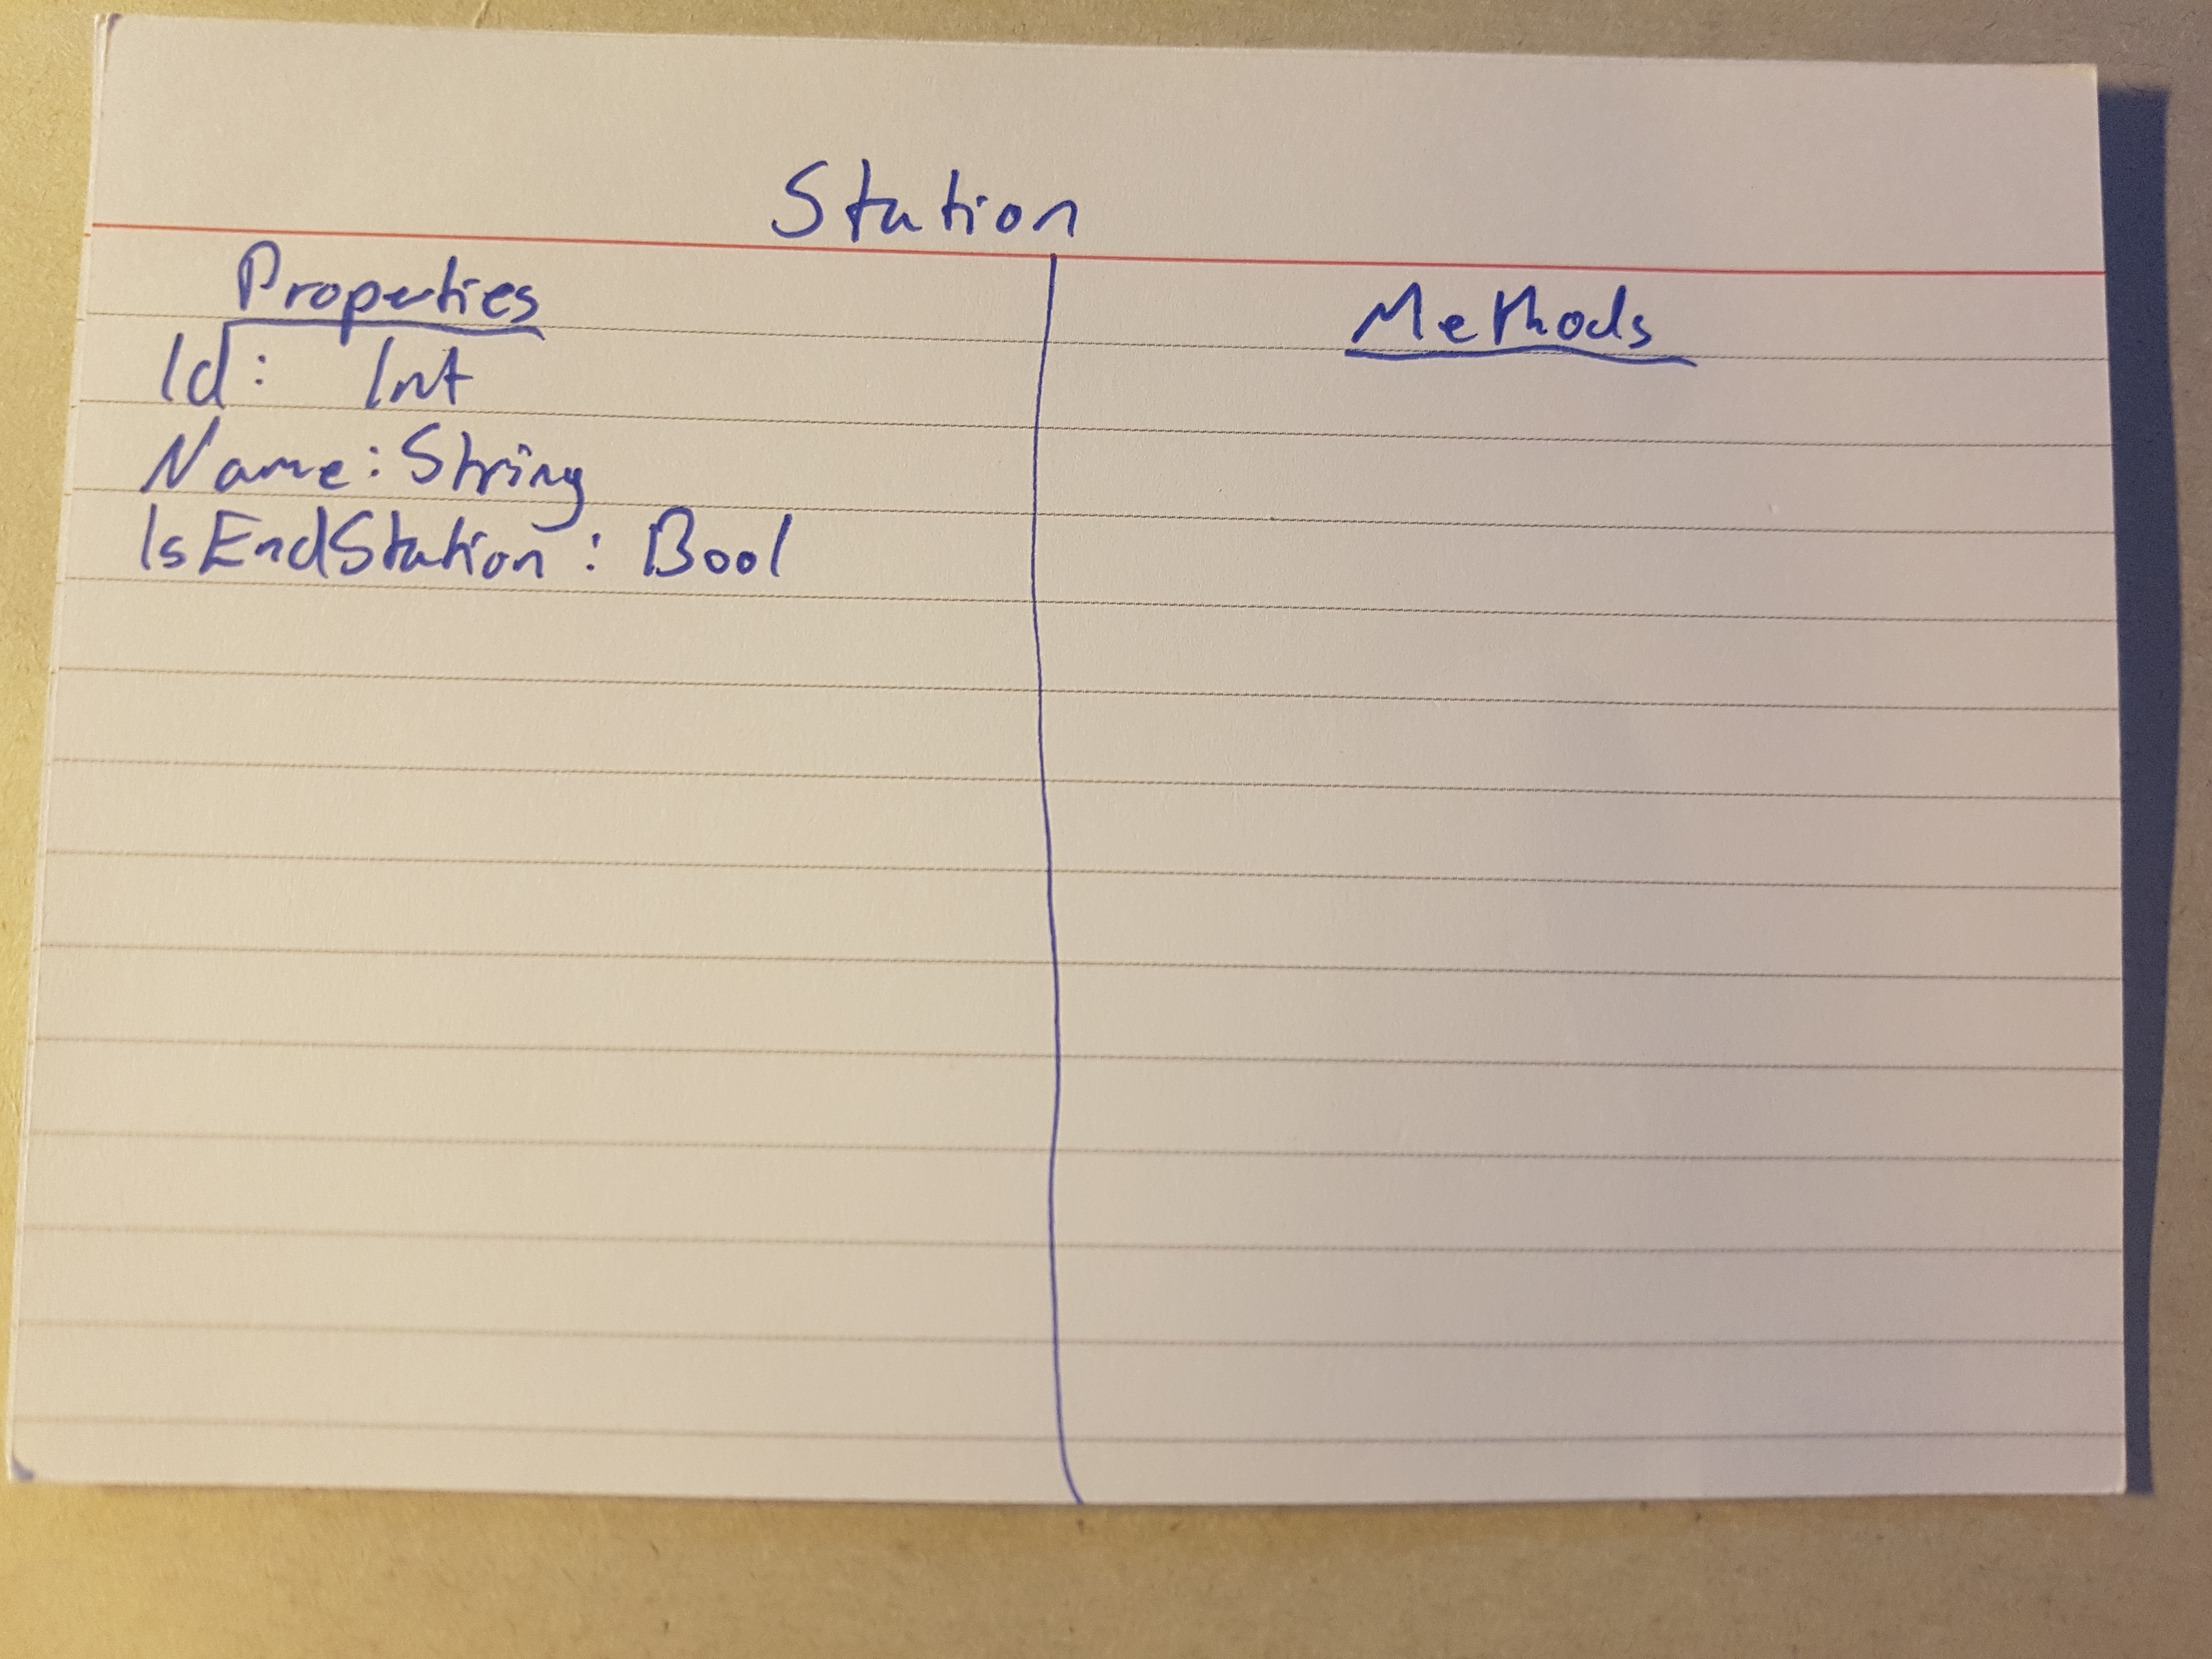 Station
Properties
Id: Int
Name: String
IsEndStation: Bool
Methods